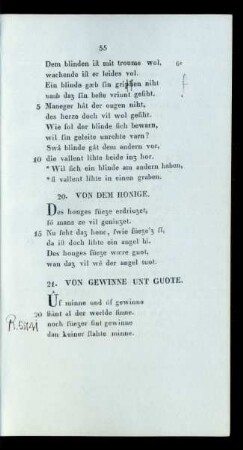 55
Dem blinden ist mit troume wol,
wachende ist er leides vol.
Ein blinde gæb sin niht
umb daz sin beste vriunt gesiht.
5 Maneger hât der ougen niht,
des herze doch vil wol gesiht.
Wie sol der blinde sich bewarn,
wil sin geleite unrehte varn?
Swâ blinde gât dem andern vor,
10 die vallent lihte beide inz hor.
*Wil sich ein blinde am andern haben,
*si vallent lihte in einen graben.
20. VON DEM HONIGE.
Des honges süeze erdriuzet,
sô mans ze vil geniuzet.
15 Nu seht daz honc, swie süeze'z si,
da ist doch lihte ein angel bi.
Des honges süeze wære guot,
wan daz vil wê der angel tuot.
21. VON GEWINNE UNT GUOTE.
Ûf minne und ûf gewinne
20 stânt al der werlde sinne.
noch süezer sint gewinne
dan keiner slahte minne.